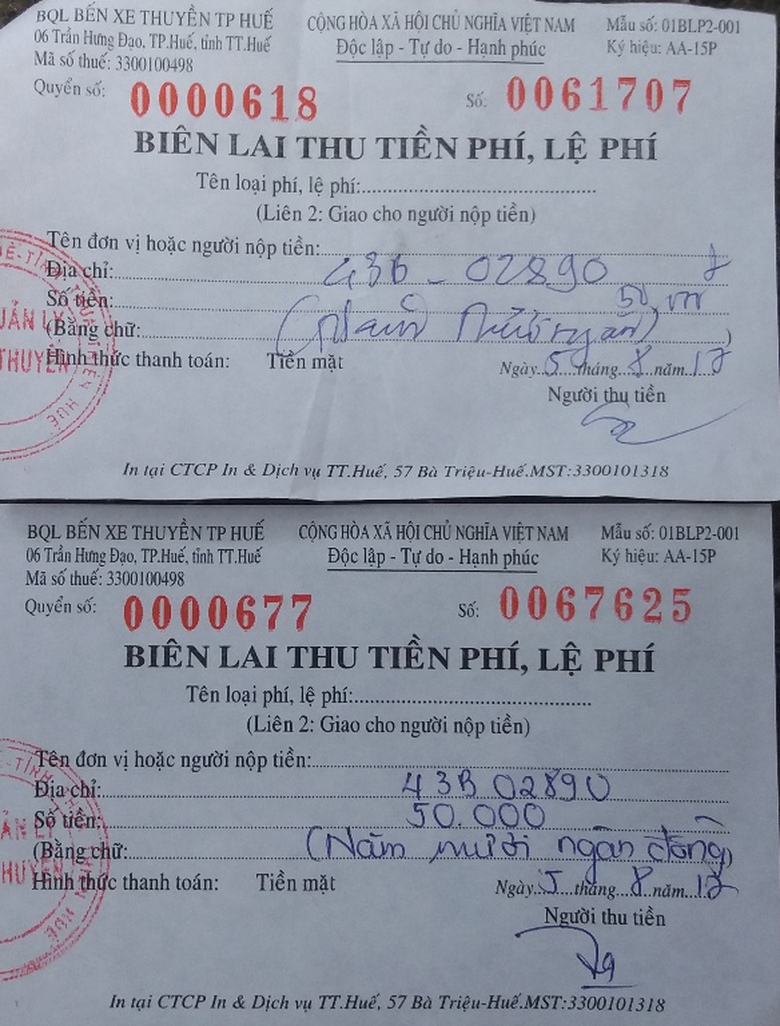 BQL BẾN XE THUYỀN TP HUẾ
06 Trần Hưng Đạo, TP.Huế, tỉnh TT.Huế
Mã số thuế: 3300100498
CỘNG HÒA XÃ HỘI CHỦ NGHĨA VIỆT NAM
Độc lập - Tự do - Hạnh phúc
Mẫu số: 01BLP2-001
Ký hiệu: AA-15P
Quyển số: 0000618
Số: 0061707
BIÊN LAI THU TIỀN PHÍ, LỆ PHÍ
Tên loại phí, lệ phí:
(Liên 2: Giao cho người nộp tiền)
Tên đơn vị hoặc người nộp tiền:
Địa chỉ: 43B - 02890
Số tiền: 50,
(Bằng chữ: (Năm mươi ngàn) )
Hình thức thanh toán: Tiền mặt
Ngày 5 tháng 8 năm 17
Người thu tiền
In tại CTCP In & Dịch vụ TT.Huế, 57 Bà Triệu-Huế.MST:3300101318
BQL BẾN XE THUYỀN TP HUẾ
06 Trần Hưng Đạo, TP.Huế, tỉnh TT.Huế
Mã số thuế: 3300100498
CỘNG HÒA XÃ HỘI CHỦ NGHĨA VIỆT NAM
Độc lập - Tự do - Hạnh phúc
Mẫu số: 01BLP2-001
Ký hiệu: AA-15P
Quyển số: 0000677
Số: 0067625
BIÊN LAI THU TIỀN PHÍ, LỆ PHÍ
Tên loại phí, lệ phí:
(Liên 2: Giao cho người nộp tiền)
Tên đơn vị hoặc người nộp tiền:
Địa chỉ: 43B 02890
Số tiền: 50.000
(Bằng chữ: (Năm mười ngàn đồng)
Hình thức thanh toán: Tiền mặt
Ngày 5 tháng 8 năm 17
Người thu tiền
In tại CTCP In & Dịch vụ TT.Huế, 57 Bà Triệu-Huế.MST:3300101318